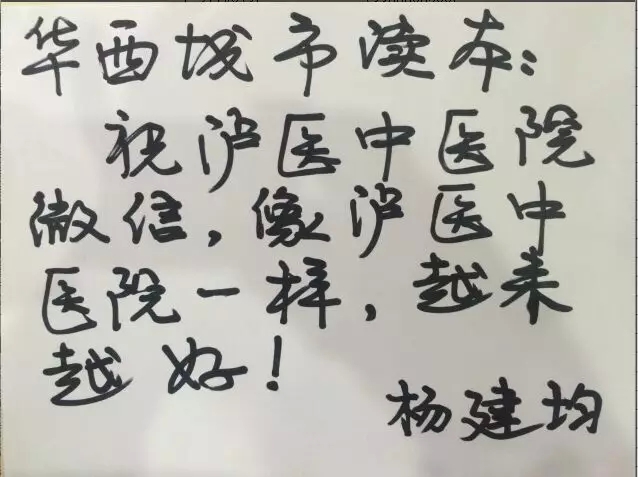 华西城市读本：
祝泸医中医院
微信，像泸医中
医院一样，越来
越好！
杨建均